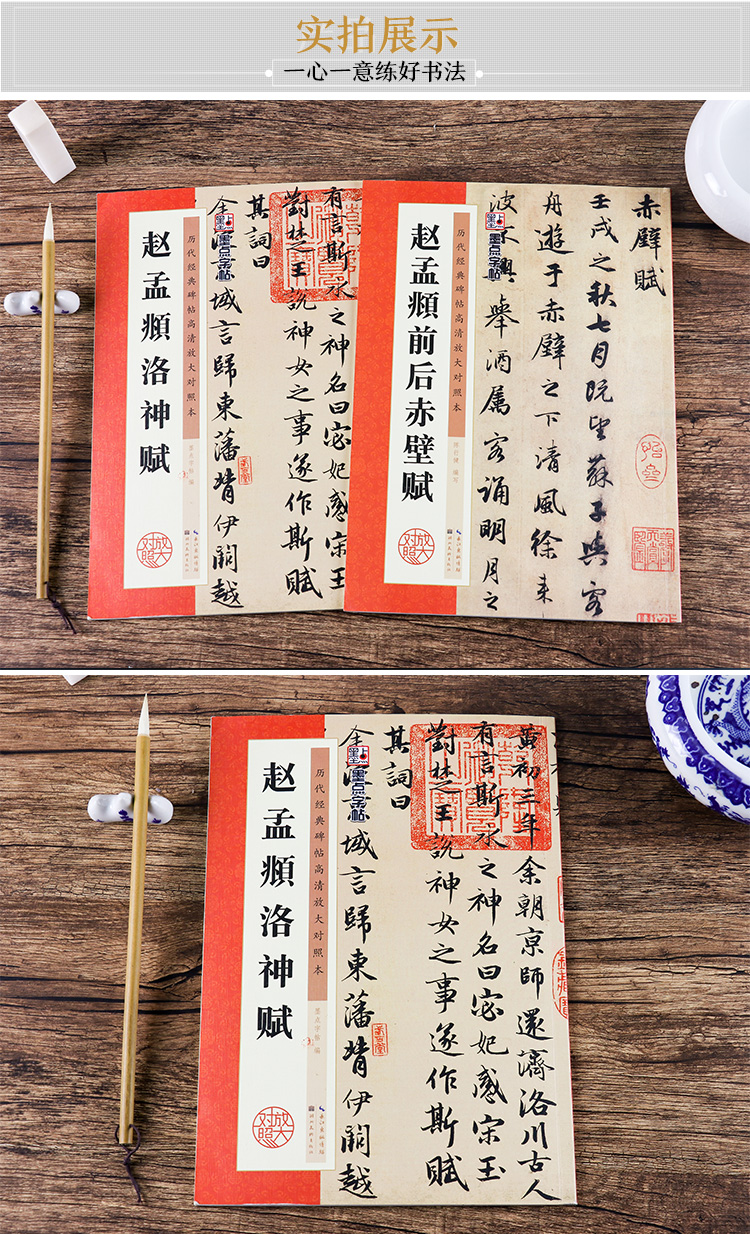 实拍展示
一心一意练好书法
赵孟頫洛神赋
历代经典碑帖高清放大对照本
墨点字帖 编
放大对照
墨点字帖
有言斯水之神名曰宓妃感宋玉
對楚王說神女之事遂作斯賦
其詞曰
余
域言歸東藩背伊闕越
赵孟頫前后赤壁赋
历代经典碑帖高清放大对照本
编写
放大对照
墨点字帖
赤壁賦
壬戌之秋七月既望蘇子與客
舟遊于赤壁之下清風徐来
波不興舉酒屬客誦明月之
赵孟頫洛神赋
历代经典碑帖高清放大对照本
墨点字帖 编
放大对照
长江出版传媒
湖北美术出版社
墨点字帖
黄初三年余朝京師還濟洛川古人
有言斯水之神名曰宓妃感宋玉
對楚王說神女之事遂作斯賦
其詞曰
余
域言歸東藩背伊闕越